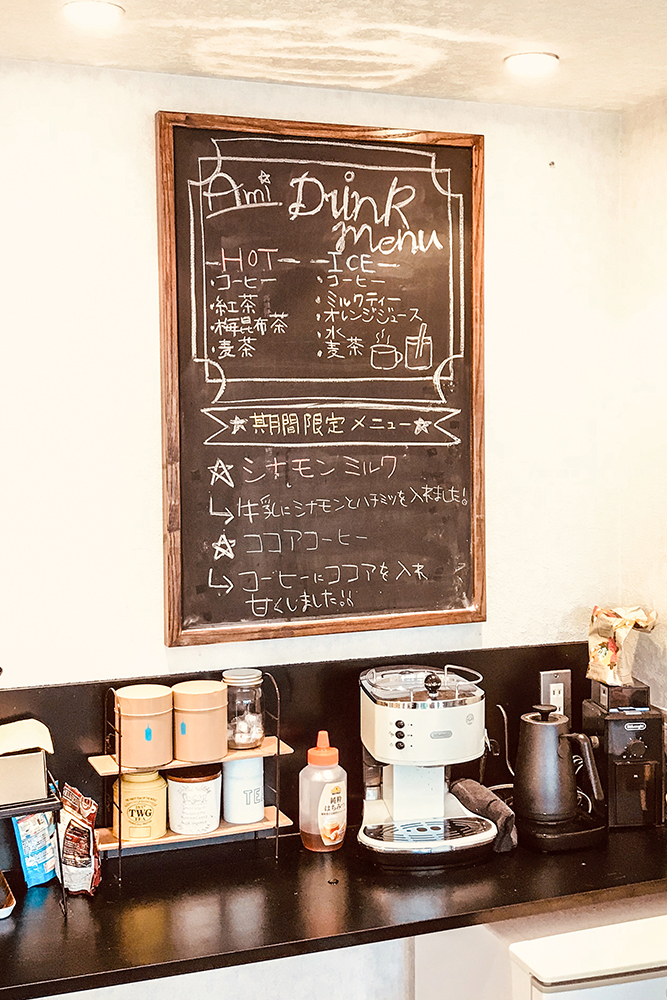 Ami Drink
menu
HOT
コーヒー
紅茶
梅昆布茶
麦茶
ICE
コーヒー
ミルクティー
オレンジジュース
水
麦茶
期間限定メニュー
シナモンミルク
牛乳にシナモンとハチミツを入れました!
ココアコーヒー
コーヒーにココアを入れ
甘くしました!!
TWG
TEA
純粋
はちみつ
DeLonghi
DeLonghi